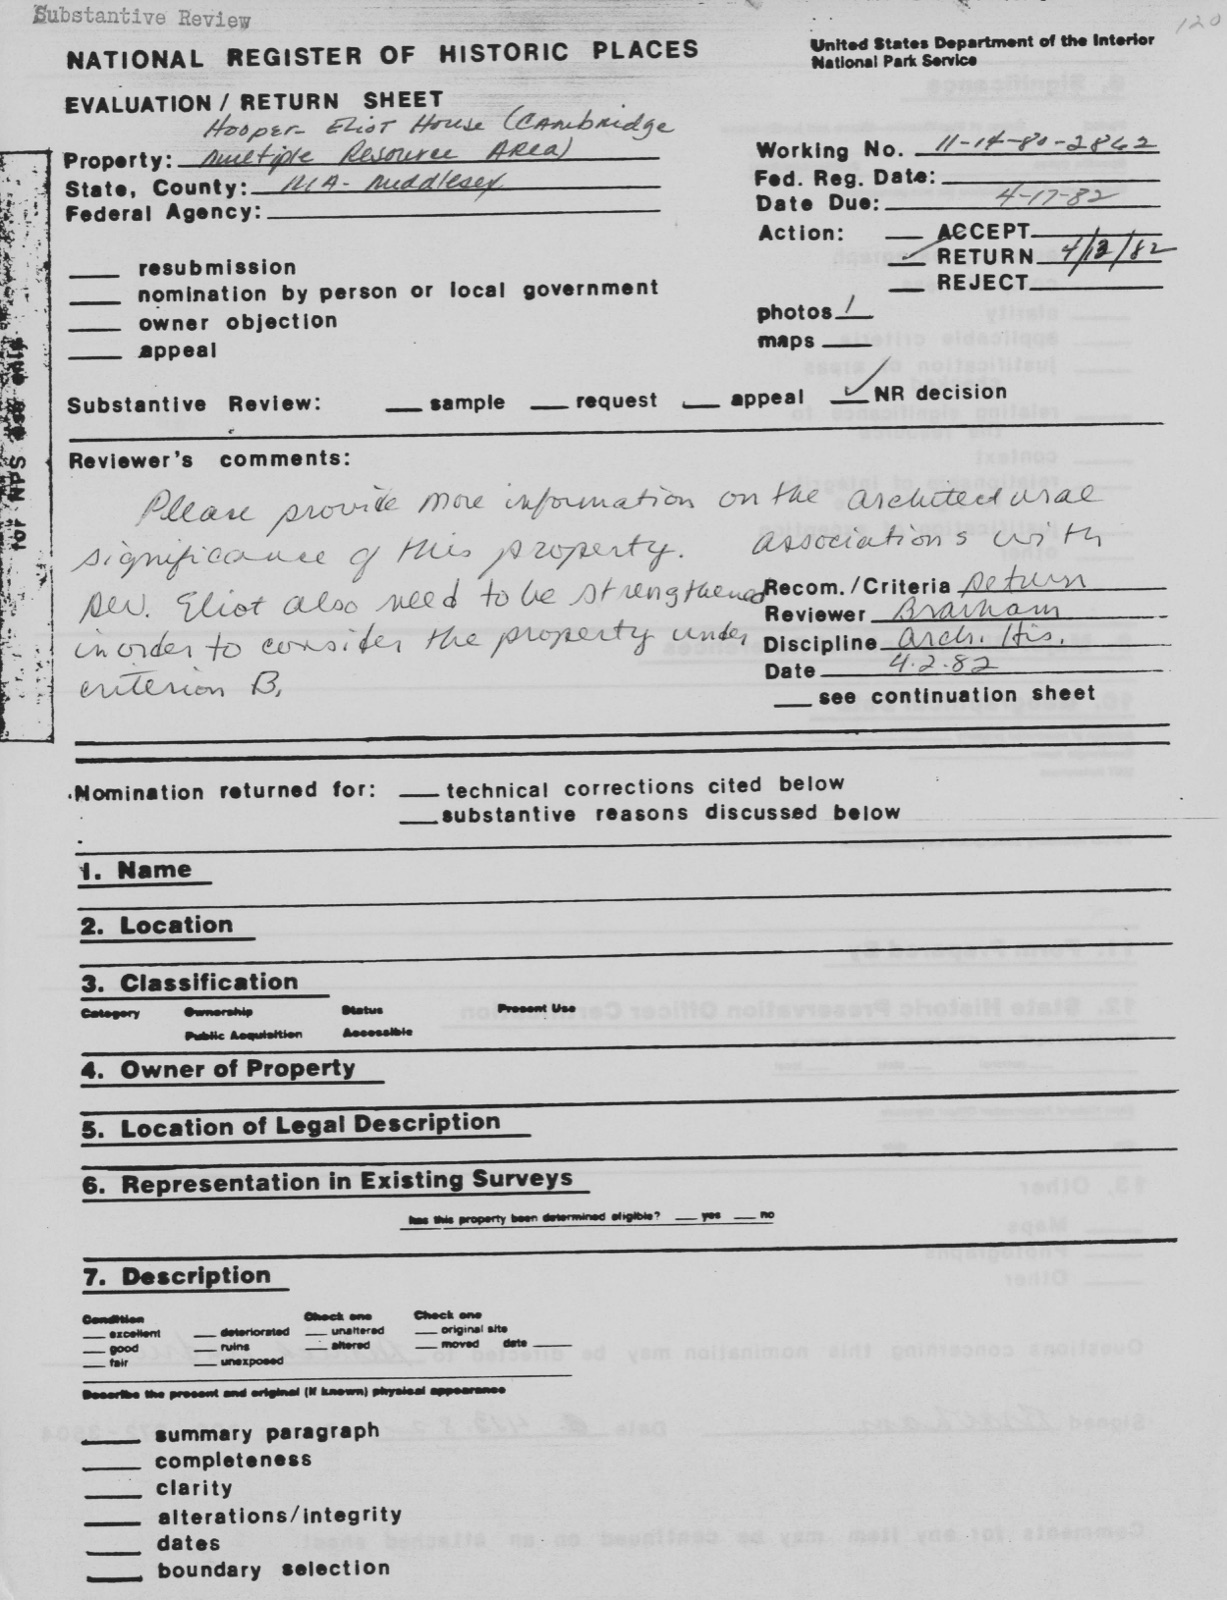 Substantive Review
120
NATIONAL REGISTER OF HISTORIC PLACES
United States Department of the Interior
National Park Service
EVALUATION / RETURN SHEET
Hooper-Eliot House (Cambridge
Property: Multiple Resource Area)
State, County: MA-Middlesex
Federal Agency:
Working No. 11-14-80-2862
Fed. Reg. Date:
Date Due: 4-17-82
Action: ACCEPT
✓ RETURN 4/13/82
REJECT
resubmission
nomination by person or local government
owner objection
appeal
photos 1
maps
for NPS use only
Substantive Review: sample request appeal ✓ NR decision
Reviewer's comments:
Please provide more information on the architectural
significance of this property. Associations with
Rev. Eliot also need to be strengthened
in order to consider the property under
criterion B.
Recom./Criteria Return
Reviewer Branham
Discipline arch. His.
Date 4.2.82
see continuation sheet
Nomination returned for: technical corrections cited below
substantive reasons discussed below
1. Name
2. Location
3. Classification
Category Ownership Status Present Use
Public Acquisition Accessible
4. Owner of Property
5. Location of Legal Description
6. Representation in Existing Surveys
has this property been determined eligible? yes no
7. Description
Condition Check one Check one
excellent deteriorated unaltered original site
good ruins altered moved date
fair unexposed
Describe the present and original (if known) physical appearance
summary paragraph
completeness
clarity
alterations/integrity
dates
boundary selection